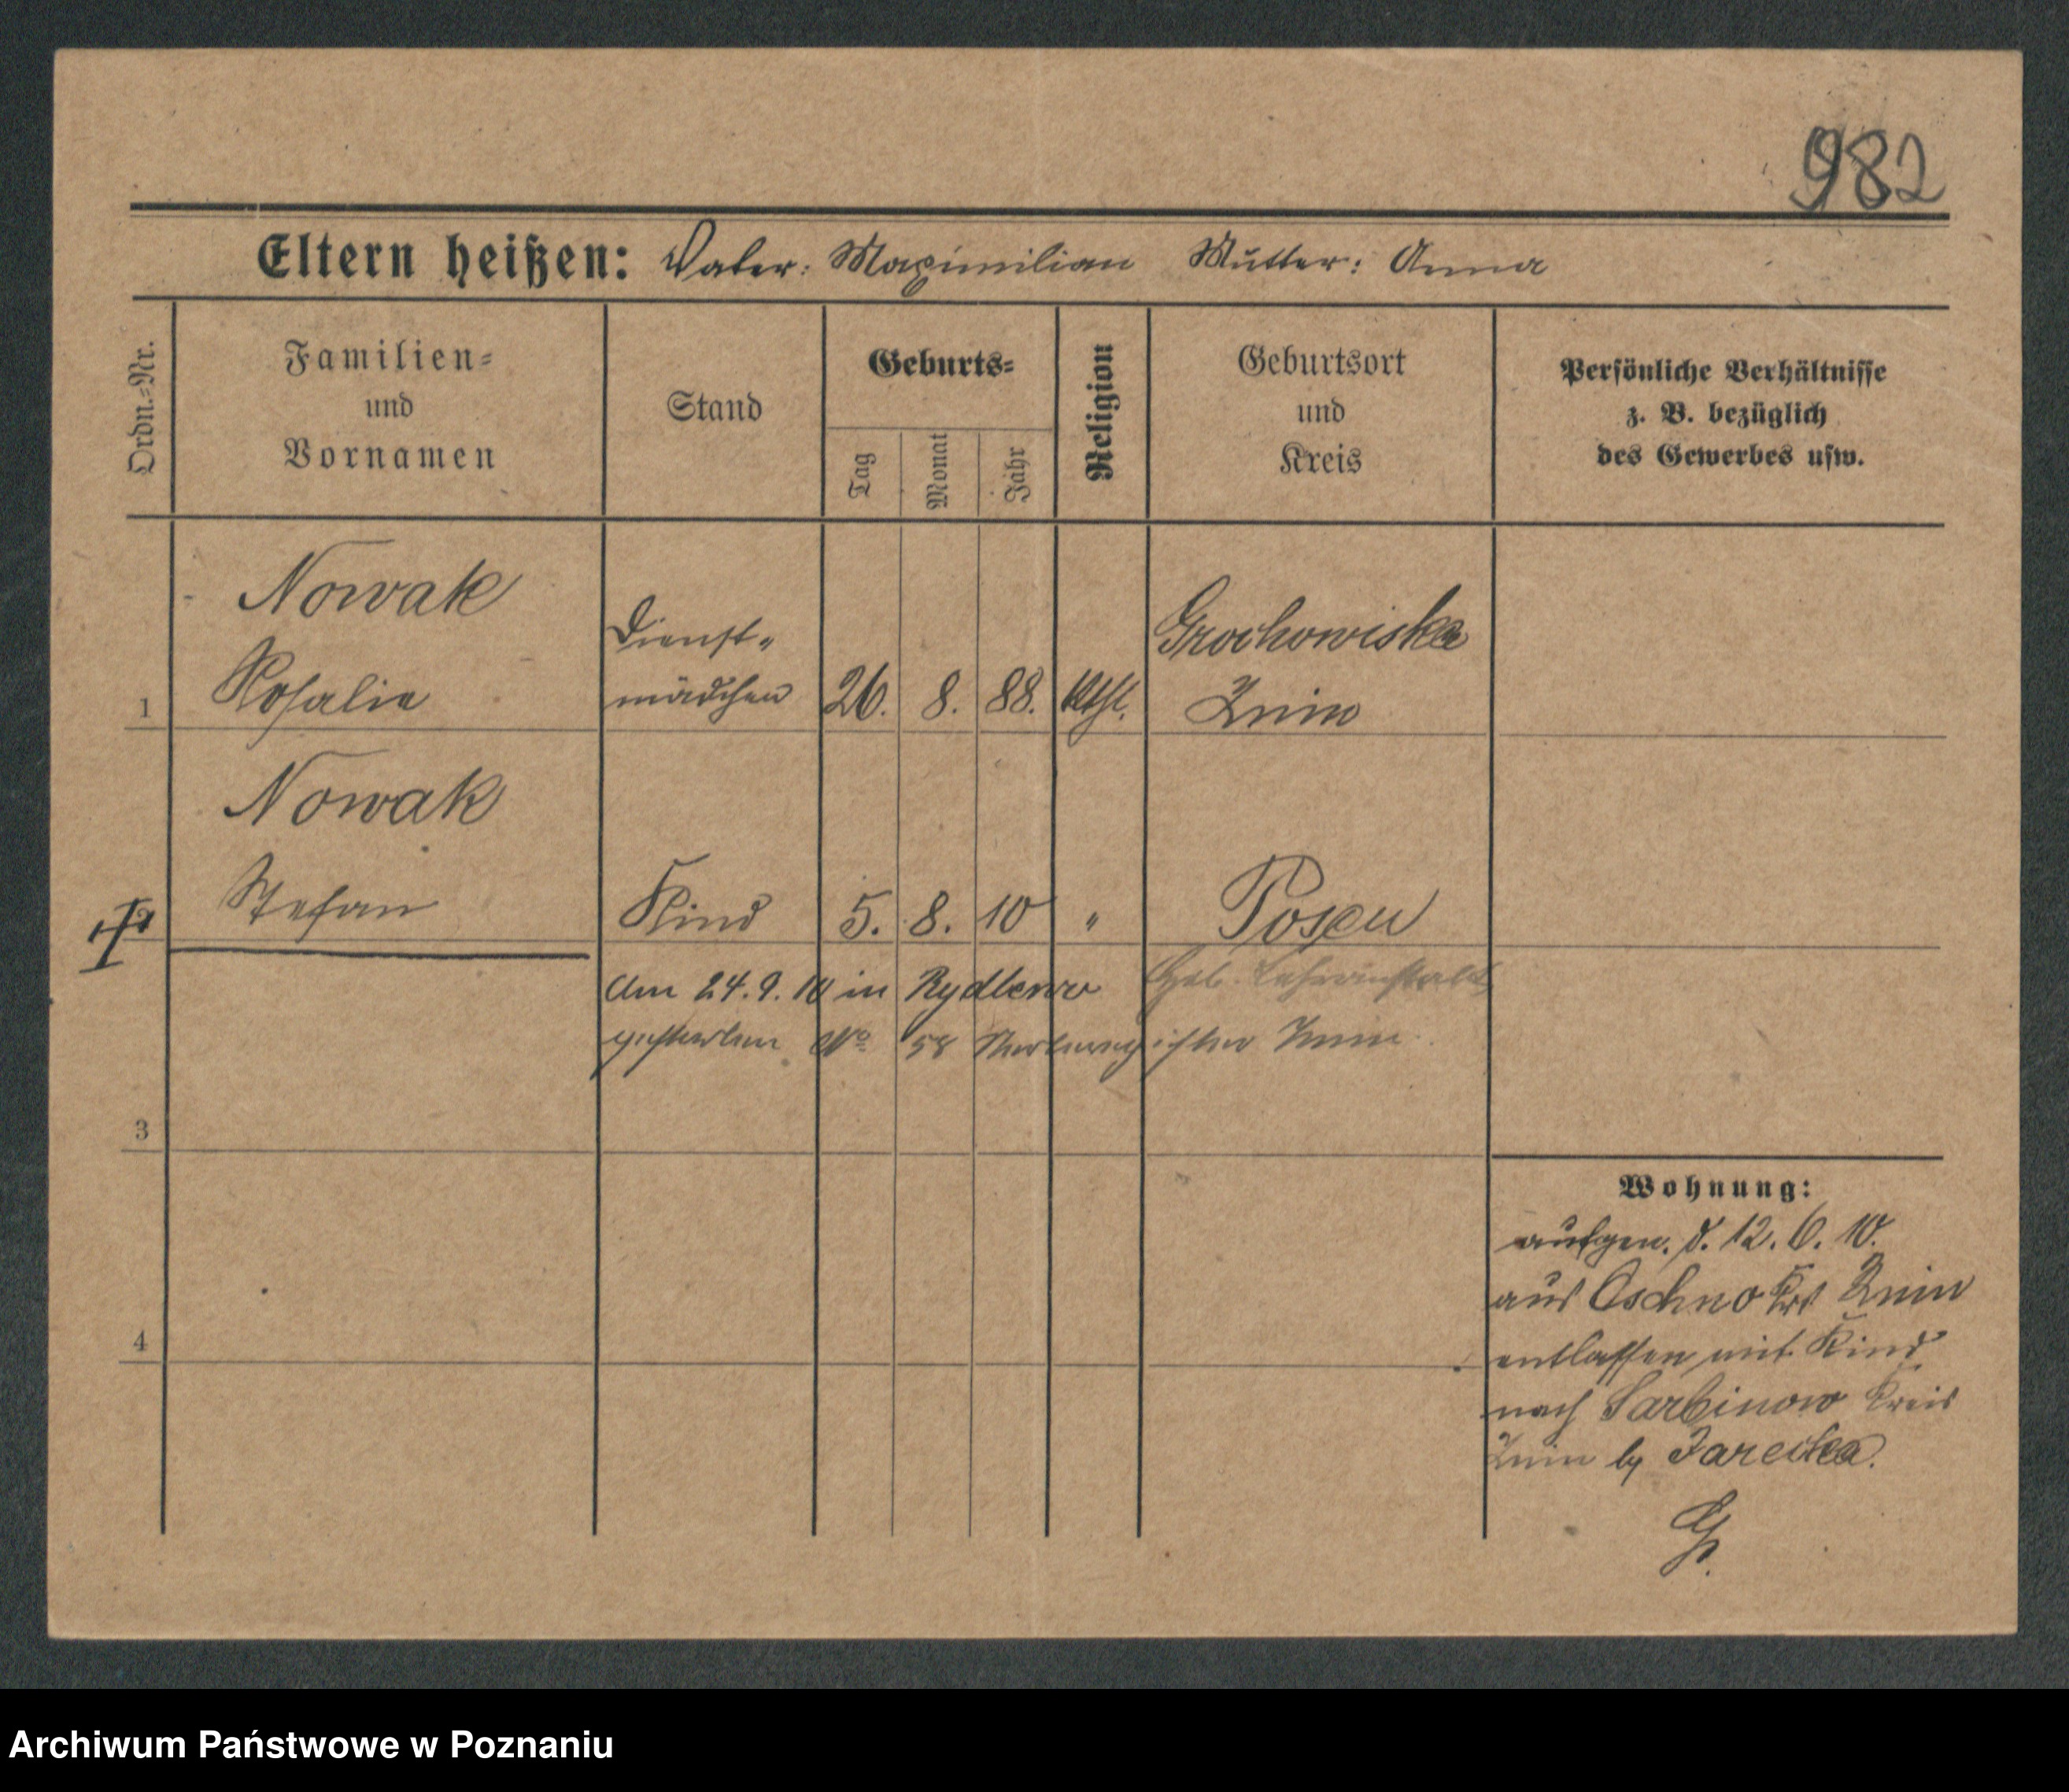 982
Eltern heißen: Vater: Maximilian Mutter: Anna
Ordn.-Nr.
Familien-
und
Vornamen
Stand
Geburts-
Tag
Monat
Jahr
Religion
Geburtsort
und
Kreis
Persönliche Verhältnisse
z. B. bezüglich
des Gewerbes usw.
1
Nowak
Rosalie
Dienst-
mädchen
26. 8. 88. kth.
Grochowiska
Znin
Nowak
Stefan
Kind
5. 8. 10 "
Posen
Geb. Lehranstalt
Am 24.9.10 in Rydlewo
gestorben No 58 Sterberegister Znin.
3
4
Wohnung:
aufgen. d. 12. 6. 10.
aus Oschno Krs Znin
entlassen mit Kind
nach Sarbinowo Kreis
Znin by
Archiwum Państwowe w Poznaniu